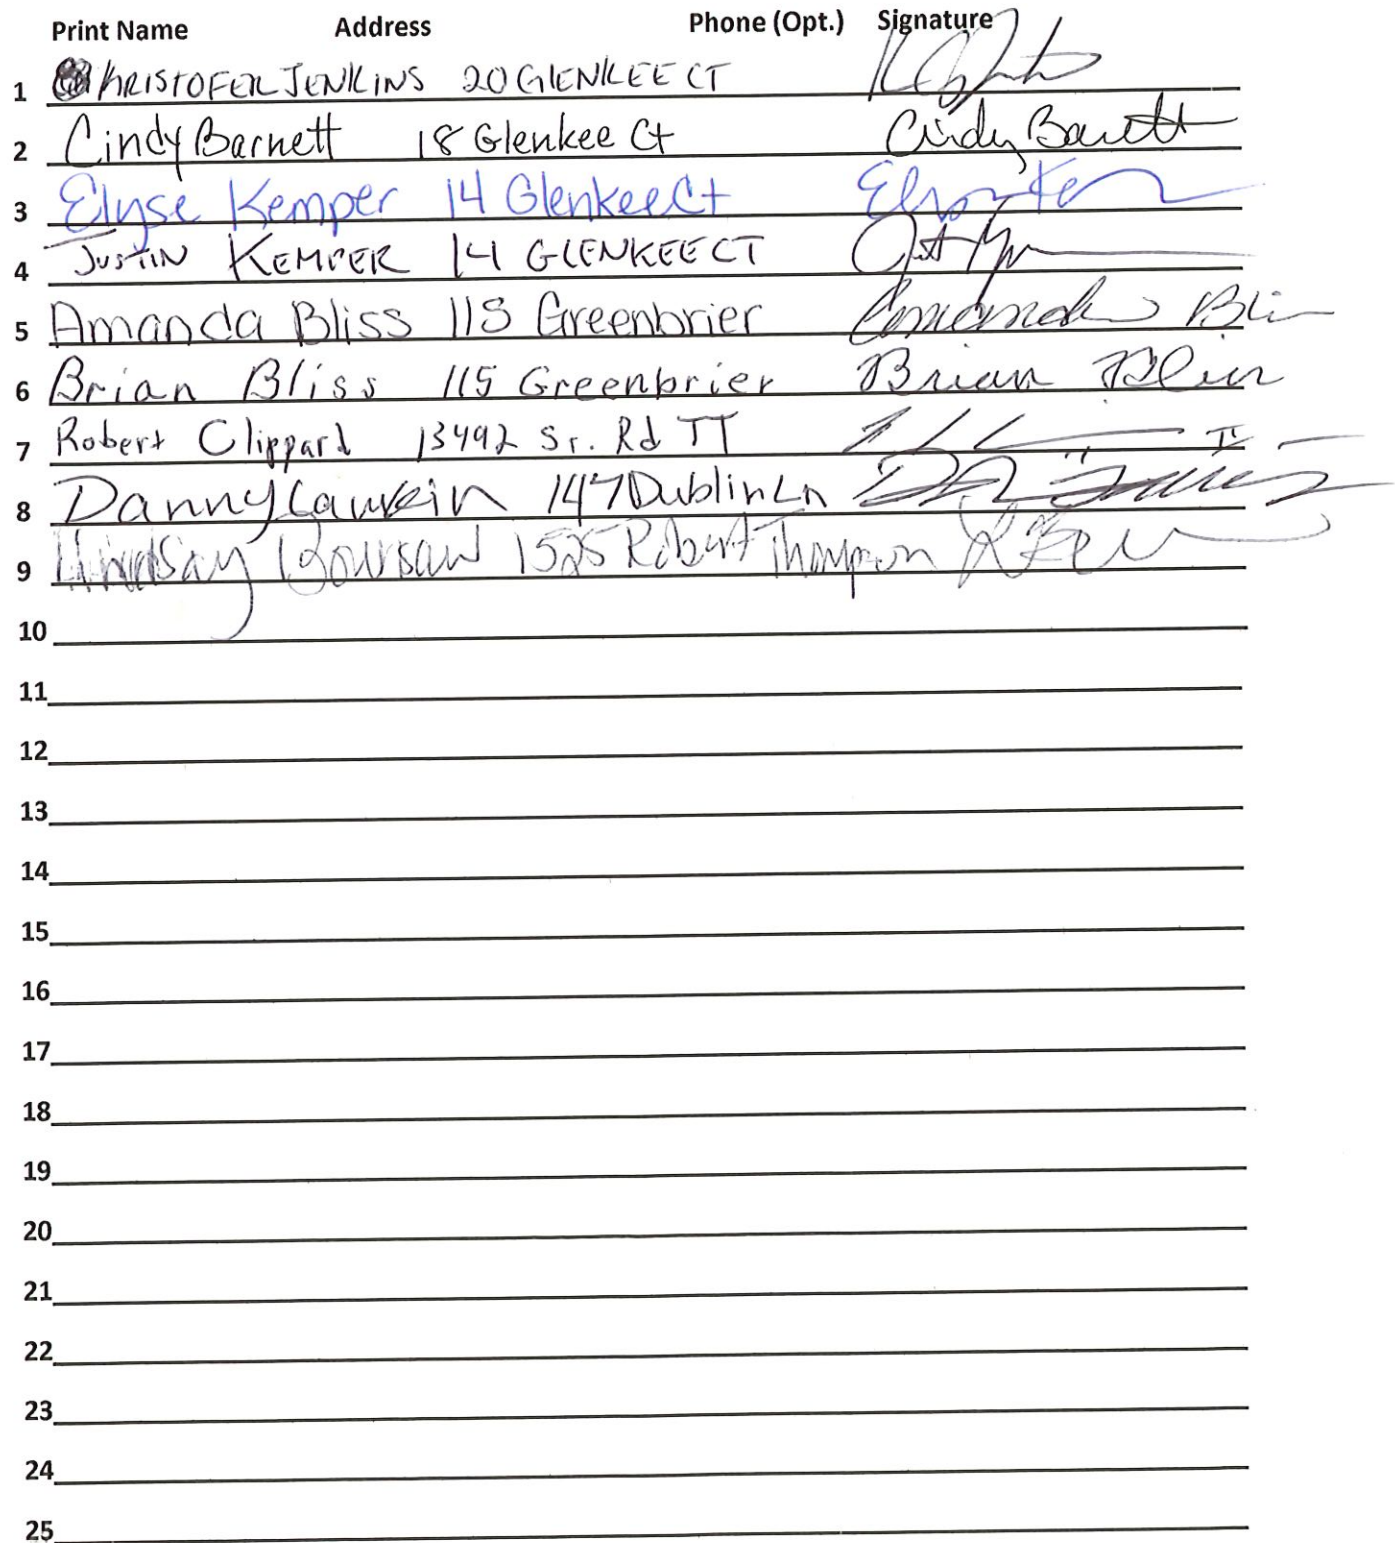 Print Name Address Phone (Opt.) Signature
1 KRISTOFER JENKINS 20 GLENKEE CT
2 Cindy Barnett 18 Glenkee Ct Cindy Barnett
3 Elyse Kemper 14 Glenkee Ct
4 JUSTIN KEMPER 14 GLENKEE CT
5 Amanda Bliss 115 Greenbrier Amanda Bli
6 Brian Bliss 115 Greenbrier Brian Bliss
7 Robert Clippard 13492 Sr. Rd TT II
8 Danny 147 Dublin Ln
9 Lindsay Boursaw 1525 Robert Thompson
10
11
12
13
14
15
16
17
18
19
20
21
22
23
24
25